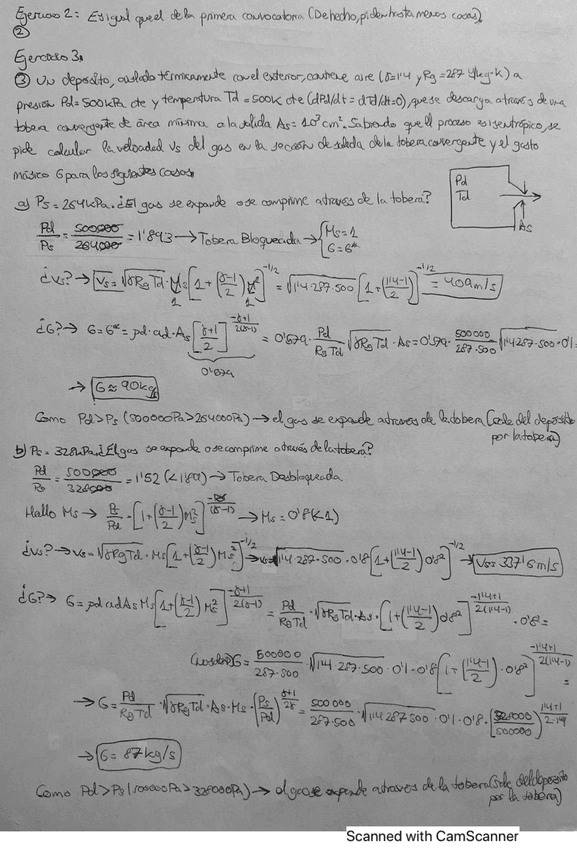 Ejercicio 2: Es igual que el de la primera convocatoria (De hecho, piden hasta menos cosas)
②
Ejercicio 3:
③ Un depósito, aislado térmicamente con el exterior, contiene aire (γ=1'4 y Rg=287 J/kg·K) a
presión Pd=500kPa cte y temperatura Td=500K cte (dPd/dt = dTd/dt=0), que se descarga a través de una
tobera convergente de área mínima a la salida As=10³cm². Sabiendo que el proceso es isentrópico, se
pide calcular la velocidad Vs del gas en la sección de salida de la tobera convergente y el gasto
másico G para los siguientes casos:
Pd
Td
As
a) Ps = 264kPa. ¿El gas se expande o se comprime a través de la tobera?
Pd/Ps = 500000/264000 = 1'893 → Tobera Bloqueada → { Ms=1 G=G*
¿Vs? → Vs = √γRgTd · Ms [1+(γ-1/2) Ms²]^-1/2 = √1'4·287·500 [1+(1'4-1/2)]^-1/2 = 409m/s
1 1
¿G? → G=G* = ρd·ad·As [γ+1/2]^-γ+1/2(γ-1) = 0'579· Pd/RgTd √γRgTd · As = 0'579· 500000/287·500 √1'4·287·500 ·0'1=
0'579
→ G ≈ 90kg/s
Como Pd>Ps (500000Pa>264000Pa) → el gas se expande a través de la tobera (sale del depósito
por la tobera)
b) Ps = 328kPa. ¿El gas se expande o se comprime a través de la tobera?
Pd/Ps = 500000/328000 = 1'52 (<1'89) → Tobera Desbloqueada
Hallo Ms → Ps/Pd = [1+(γ-1/2)Ms²]^-γ/(γ-1) → Ms = 0'8 (<1)
¿Vs? → Vs = √γRgTd · Ms [1+(γ-1/2)Ms²]^-1/2 → Vs = √1'4·287·500 · 0'8 [1+(1'4-1/2)0'8²]^-1/2 → Vs = 337'6m/s
¿G? → G = ρd ad As Ms [1+(γ-1/2) Ms²]^-γ+1/2(γ-1) = Pd/RgTd · √γRgTd · As · [1+(1'4-1/2)0'8²]^-1'4+1/2(1'4-1) · 0'8 =
G = 500000/287·500 · √1'4·287·500 · 0'1 · 0'8 [1+(1'4-1/2)·0'8²]^-1'4+1/2(1'4-1) =
→ G = Pd/RgTd · √γRgTd · As · Ms · (Ps/Pd)^γ+1/2γ = 500000/287·500 · √1'4·287·500 · 0'1 · 0'8 · [328000/500000]^1'4+1/2·1'4
→ G = 87kg/s
Como Pd>Ps (500000Pa>328000Pa) → el gas se expande a través de la tobera (sale del depósito
por la tobera)
Scanned with CamScanner